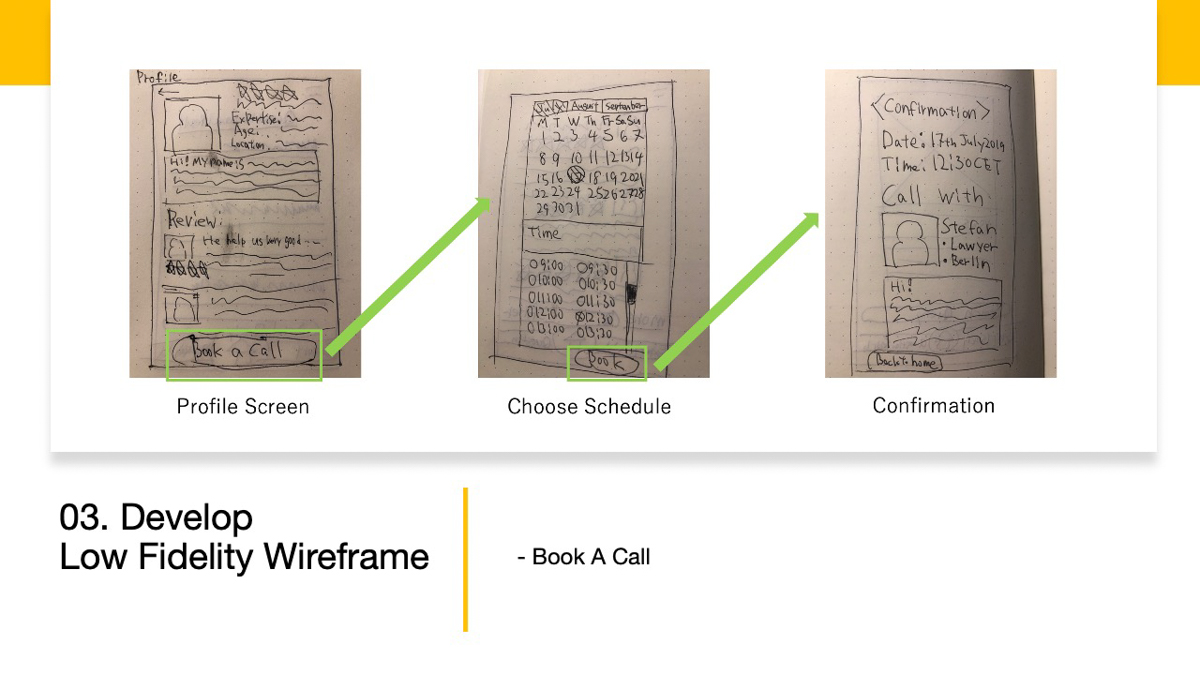 Profile
Expertise:
Age:
Location:
Hi! My name is
Review:
He help us very good --
Book a Call
Profile Screen
July August September
M T W Th Fr Sa Su
1 2 3 4 5 6 7
8 9 10 11 12 13 14
15 16 18 19 20 21
22 23 24 25 26 27 28
29 30 31
Time
09:00 09:30
010:00 010:30
011:00 011:30
012:00 012:30
013:00 013:30
Book
Choose Schedule
<Confirmation>
Date: 17th July 2019
Time: 12:30 CET
Call with
Stefan
• Lawyer
• Berlin
Hi!
Back to home
Confirmation
03. Develop
Low Fidelity Wireframe
- Book A Call